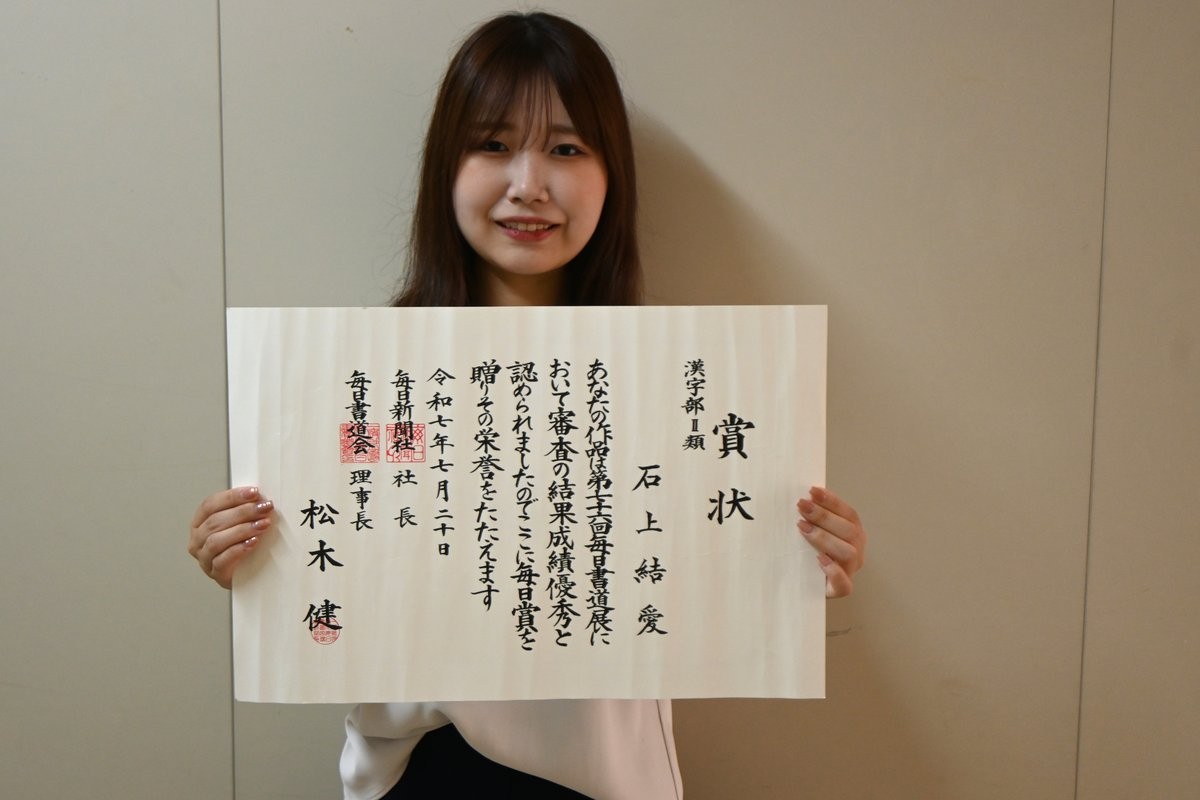 賞状
漢字部Ⅱ類
石上結愛
あなたの作品は第七十六回毎日書道展に
おいて審査の結果成績優秀と
認められましたのでここに毎日賞を
贈りその栄誉をたたえます
令和七年七月二十日
毎日新聞社 社長
毎日書道会 理事長
松木健